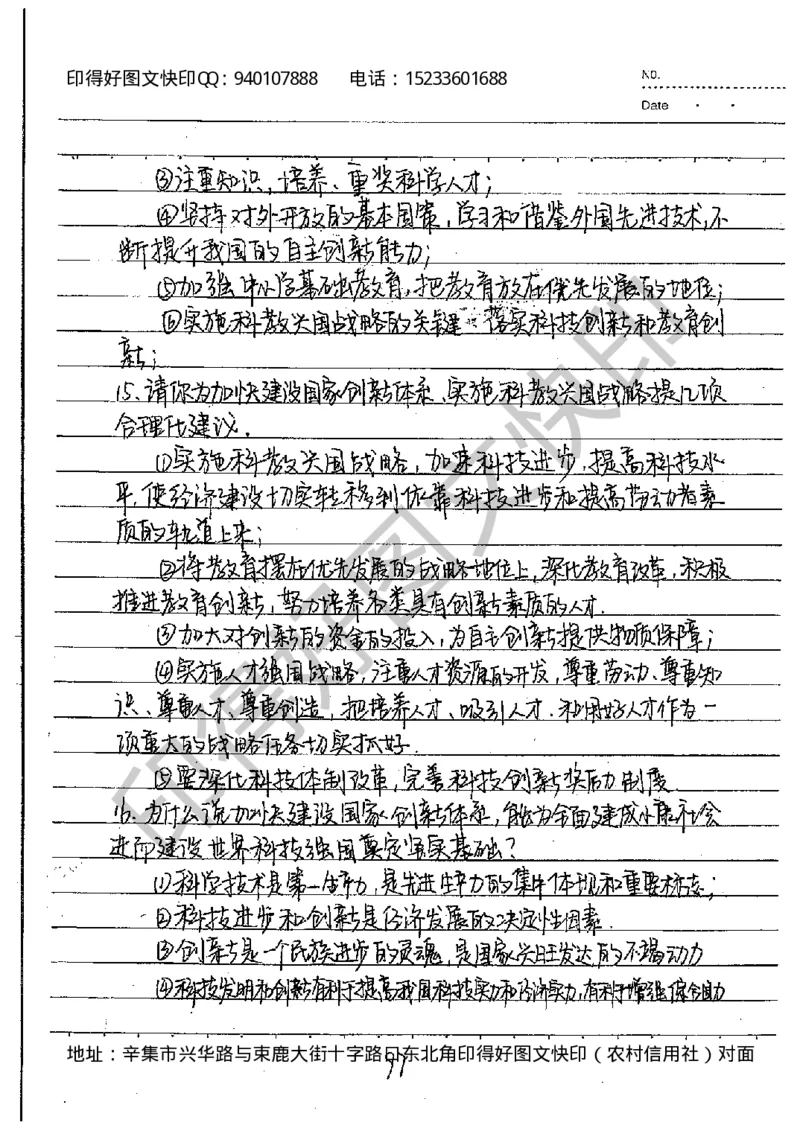 印得好图文快印QQ：940107888 电话：15233601688
No.
Date
③注重知识，培养、重奖科学人才；
④坚持对外开放的基本国策，学习和借鉴外国先进技术，不
断提升我国的自主创新能力；
⑤加强中小学基础教育，把教育放在优先发展的地位；
⑥实施科教兴国战略的关键：落实科技创新和教育创
新；
15、请你为加快建设国家创新体系、实施科教兴国战略提几项
合理化建议．
①实施科教兴国战略，加速科技进步，提高科技水
平，使经济建设切实转移到依靠科技进步和提高劳动者素
质的轨道上来；
②将教育摆在优先发展的战略地位上，深化教育改革，积极
推进教育创新，努力培养各类具有创新素质的人才．
③加大对创新的资金的投入，为自主创新提供物质保障；
④实施人才强国战略，注重人才资源的开发，尊重劳动、尊重知
识、尊重人才、尊重创造，把培养人才、吸引人才、和用好人才作为一
项重大的战略任务切实抓好．
⑤要深化科技体制改革，完善科技创新奖励制度
16．为什么说加快建设国家创新体系，能为全面建成小康社会
进而建设世界科技强国奠定坚实基础？
①科学技术是第一生产力，是先进生产力的集中体现和重要标志；
②科技进步和创新是经济发展的决定性因素．
③创新是一个民族进步的灵魂，是国家兴旺发达的不竭动力
④科技发明和创新有利于提高我国科技实力和经济实力，有利于增强综合国力
地址：辛集市兴华路与束鹿大街十字路口东北角印得好图文快印（农村信用社）对面
印得好图文快印